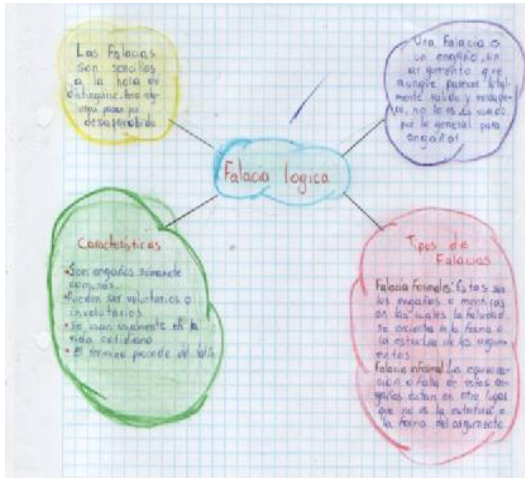 Las Falacias
son sencillas
a la hora de
distinguirse, Pero
aquí pasan por
desapercibido
Una Falacia es
un engaño, un
argumento que
aunque parezca total-
mente valido y
no lo es. Es usado
por lo general para
engañar
Falacia logica
Características
• Son engaños sumamente
comunes.
• Pueden ser voluntarios o
involuntarios
• Se usan usualmente en la
vida cotidiana
• El termino procede del latín
Tipos de
Falacias
Falacia Formales: Estas son
los engaños o mentiras
en las cuales la falsedad
se encuentra en la forma o
la estructura de los argum
entos
Falacia informal: La equivocar
cion o falla de estos en
gaños estan en otro lugar
que no es la estructura o
la forma del argumento